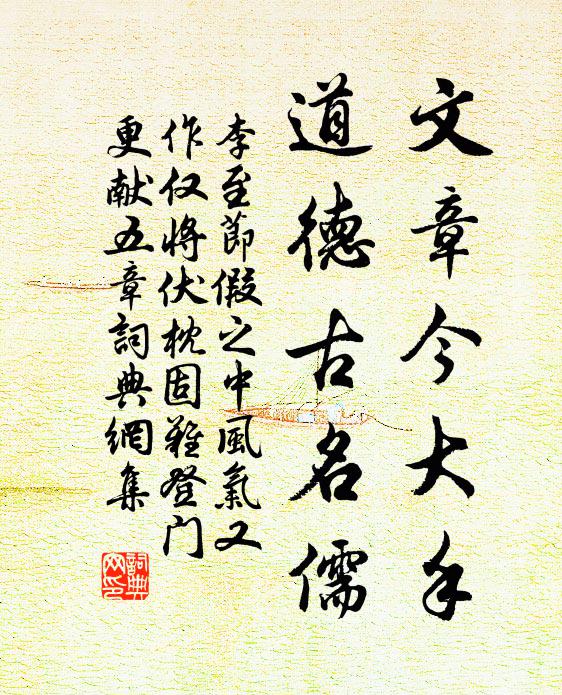 文章今大手
道德古名儒
李至節假之中風氣又
作仅将伏枕固難登门
更献五章詞典網集
詞典网印